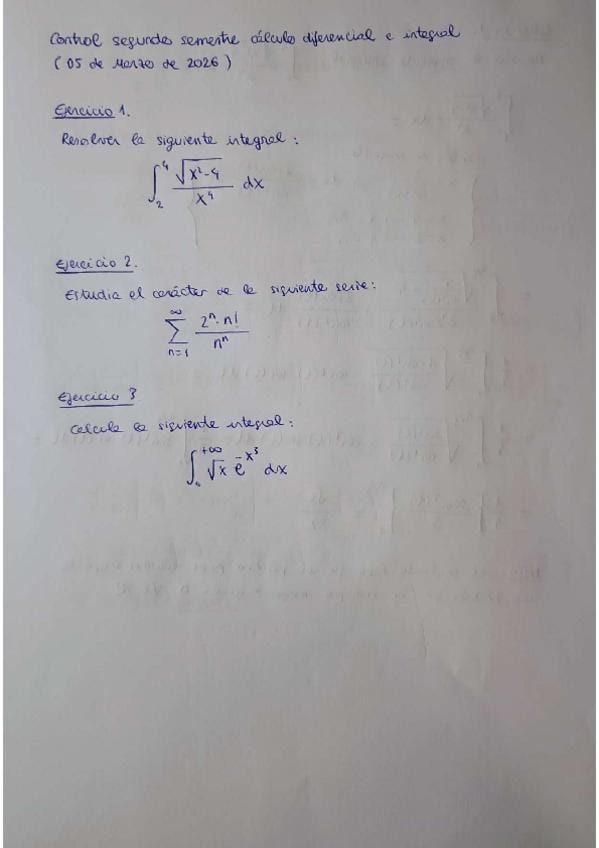 Control segundo semestre cálculo diferencial e integral
(05 de Marzo de 2026)
Ejercicio 1.
Resolver la siguiente integral:
∫₂⁴ √(x²-4) / x⁴ dx
Ejercicio 2.
Estudia el carácter de la siguiente serie:
∑_{n=1}^{∞} 2ⁿ · n! / nⁿ
Ejercicio 3
Calcula la siguiente integral:
∫₀^{+∞} √x e^{-x³} dx